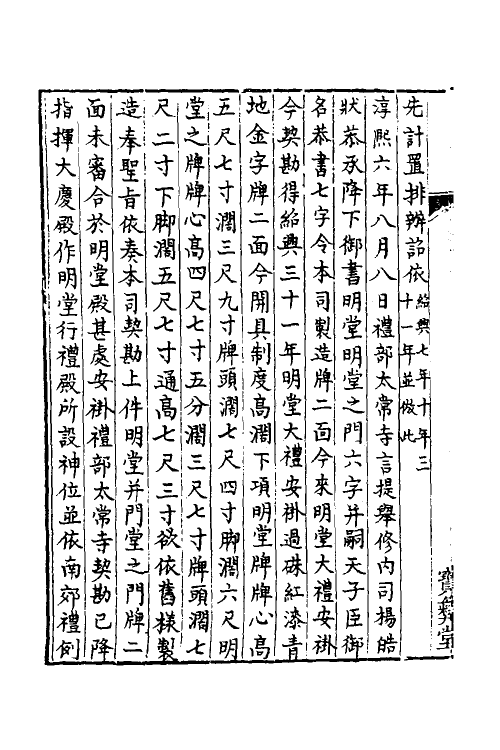 先計置排辨詔依紹興七年十年三十一年並倣此
淳熙六年八月八日禮部太常寺言提舉修内司楊皓
狀恭承降下御書明堂明堂之門六字并嗣天子臣御
名恭書七字令本司製造牌二面今來明堂大禮安掛
今契勘得紹興三十一年明堂大禮安掛過硃紅漆青
地金字牌二面今開具制度高濶下項明堂牌牌心高
五尺七寸濶三尺九寸牌頭濶七尺四寸脚濶六尺明
堂之牌牌心高四尺七寸五分濶三尺七寸牌頭濶七
尺二寸下脚濶五尺七寸通高七尺三寸欲依舊様製
造奉聖旨依奏本司契勘上件明堂并門堂之門牌二
面未審合於明堂殿甚處安掛禮部太常寺契勘已降
指揮大慶殿作明堂行禮殿所設神位並依南郊禮例